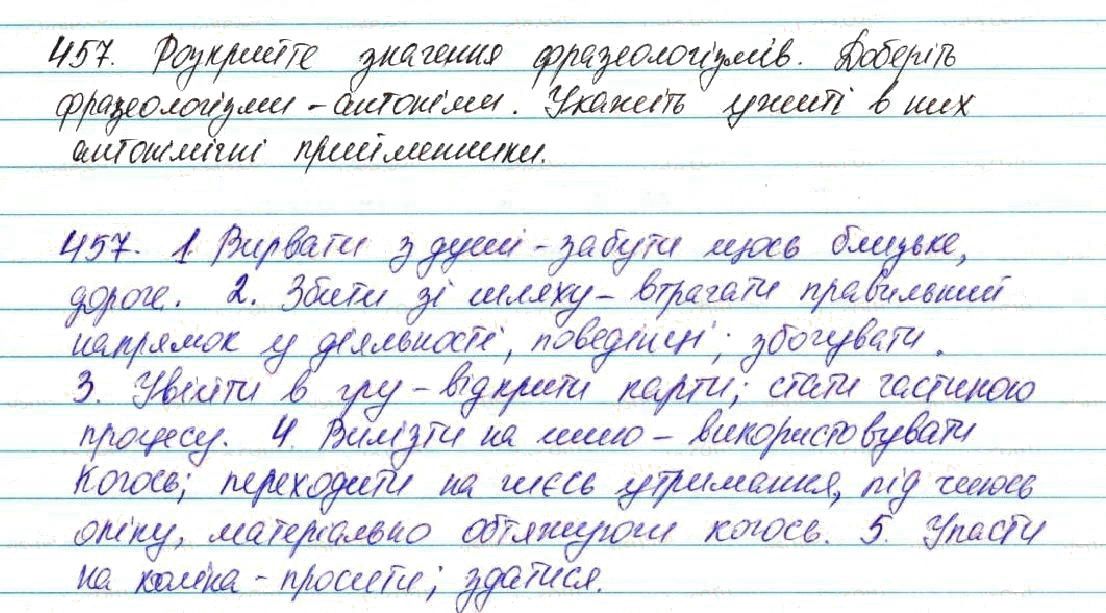 457. Розкрийте значення фразеологізмів. Доберіть
фразеологізми - антоніми. Укажіть ужиті в них
антонімічні прийменники.
457. 1. Вирвати з душі - забути щось близьке,
дороге. 2. Збити зі шляху - втрачати правильний
напрямок у діяльності, поведінці; збочувати.
3. Увійти в гру - відкрити карти; стати частиною
процесу. 4. Вилізти на шию - використовувати
когось; переходити на чиєсь утримання, під чиюсь
опіку, матеріально обтяжуючи когось. 5. Упасти
на коліна - просити; здатися.